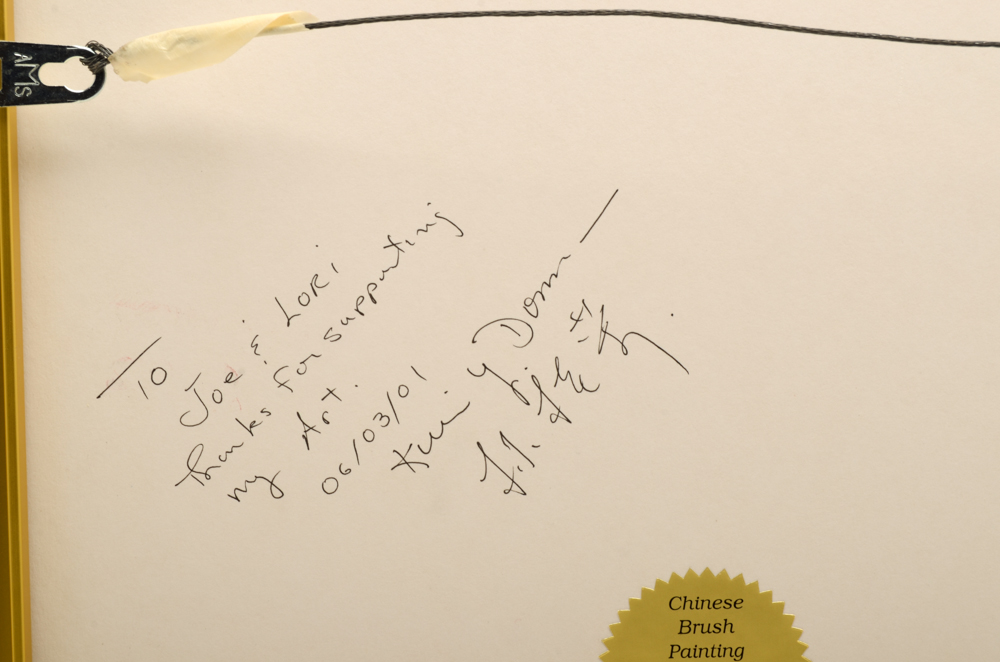 AMS
TO
Joe & LORi
thanks for supporting
my Art.
06/03/01
Y. Donn
Chinese
Brush
Painting